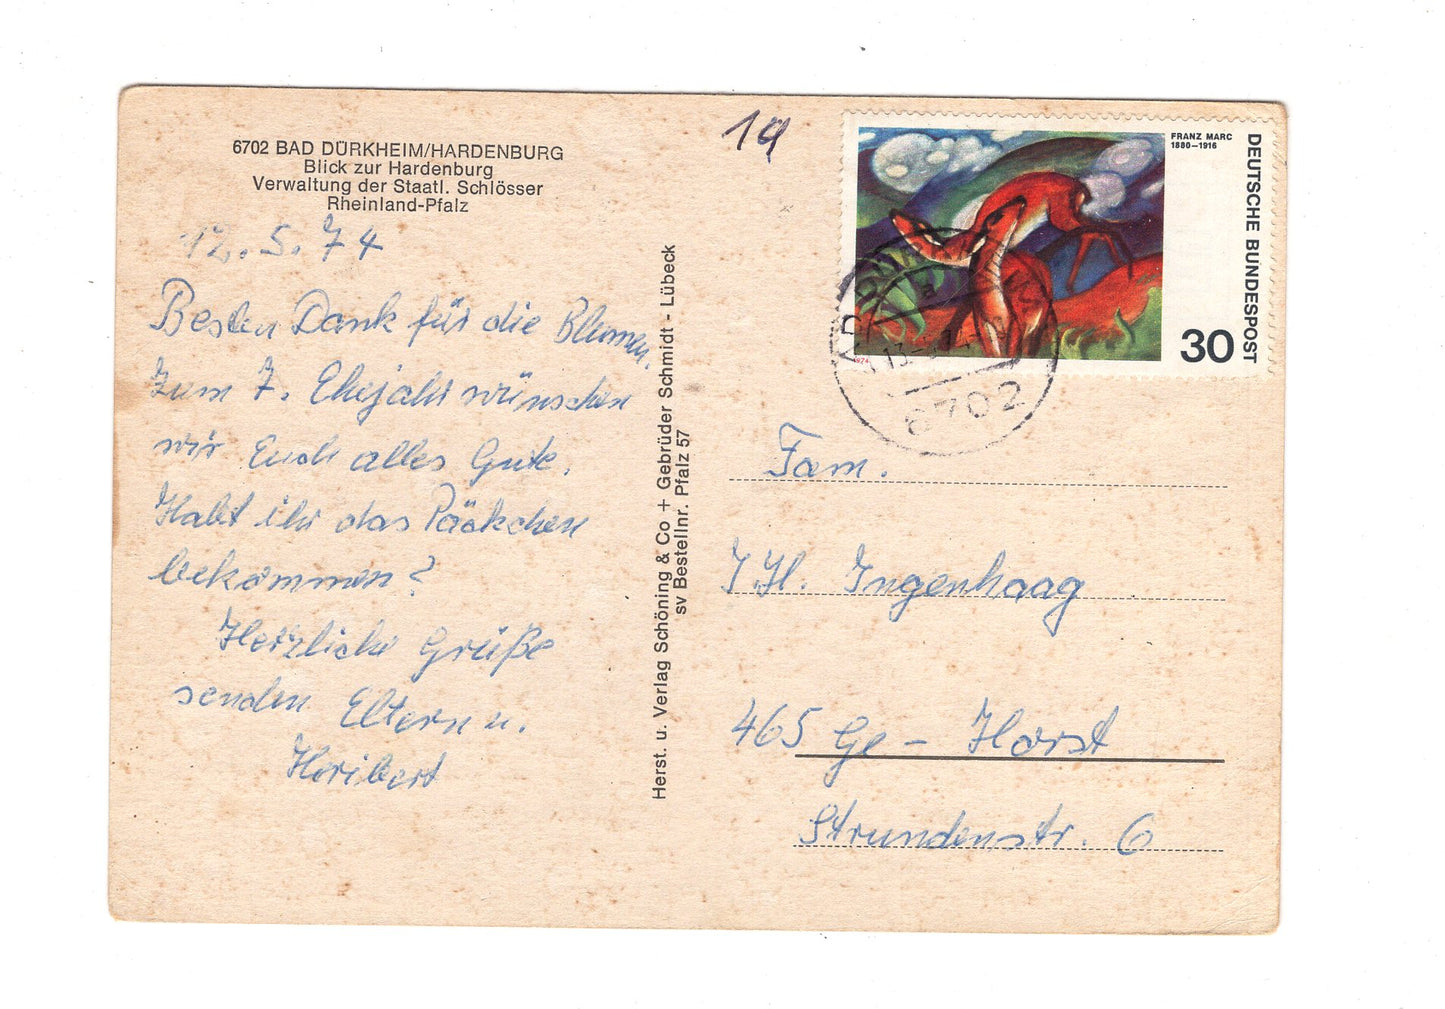 6702 BAD DÜRKHEIM/HARDENBURG
Blick zur Hardenburg
Verwaltung der Staatl. Schlösser
Rheinland-Pfalz
12.5.74
Besten Dank für die Blumen.
Zum 7. Ehejahr wünschen
wir Euch alles Gute.
Habt ihr das Päckchen
bekommen?
Herzliche Grüße
senden Eltern u.
Heribert
Herst. u. Verlag Schöning & Co + Gebrüder Schmidt - Lübeck
sv Bestellnr. Pfalz 57
19
FRANZ MARC
1880–1916
DEUTSCHE BUNDESPOST
30
1974
6702
Fam.
Ingenhaag
465 Ge - Horst
Strundenstr. 6